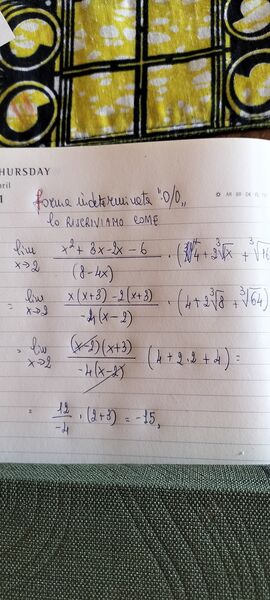 HURSDAY
pril
1
forma indeterminata "0/0"
lo RISCRIVIAMO COME
lim x→2 x² + 3x - 2x - 6 / (8 - 4x) · (4 + 2∛x + ∛
= lim x→2 x(x+3) - 2(x+3) / -4(x-2) · (4 + 2∛8 + ∛64)
= lim x→2 (x-2)(x+3) / -4(x-2) (4 + 2·2 + 4) =
= 12 / -4 · (2+3) = -15,